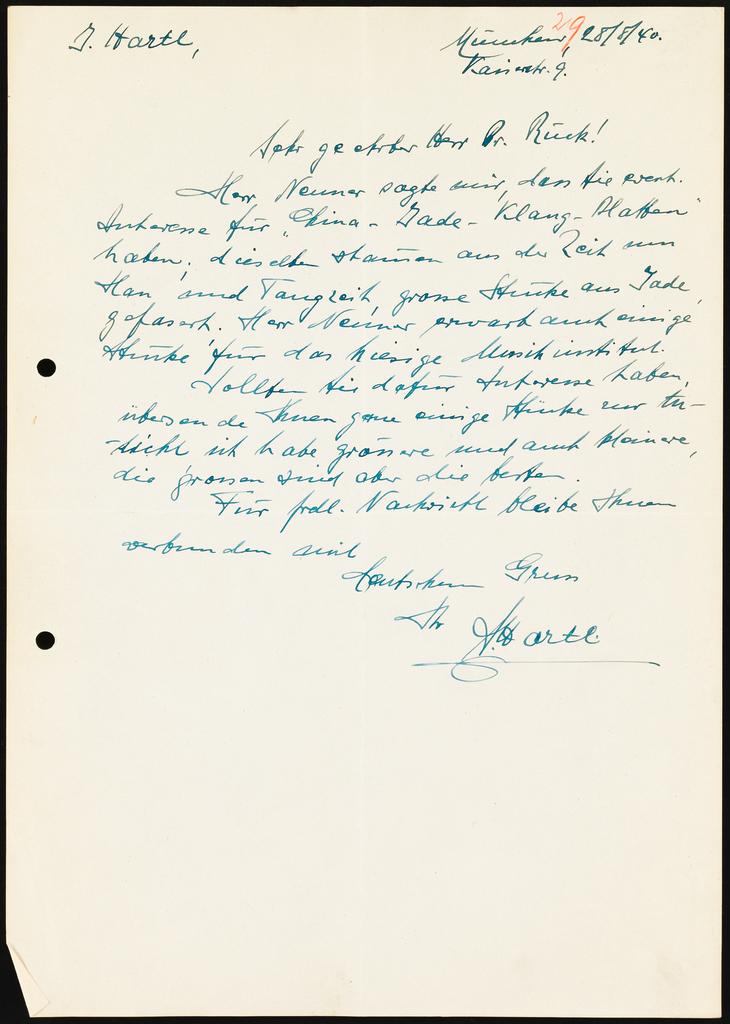 J. Hartl,
29
München, 28/8/40.
Kaiserstr. 9.
Sehr geehrter Herr Dr. Rück!
Herr Neuner sagte mir, dass Sie event.
Interesse für „China-Jade-Klang-Platten"
haben, dieselben stammen aus der Zeit von
Han und Tangzeit, grosse Stücke aus Jade,
gefasert. Herr Neuner erwarb auch einige
Stücke für das hiesige Musikinstitut.
Sollten Sie dafür Interesse haben,
übersende Ihnen gerne einige Stücke zur An-
sicht ich habe grössere und auch kleinere,
die grossen sind aber die besten.
Für frdl. Nachricht bleibe Ihnen
verbunden mit
Deutschem Gruss
Ihr J. Hartl.